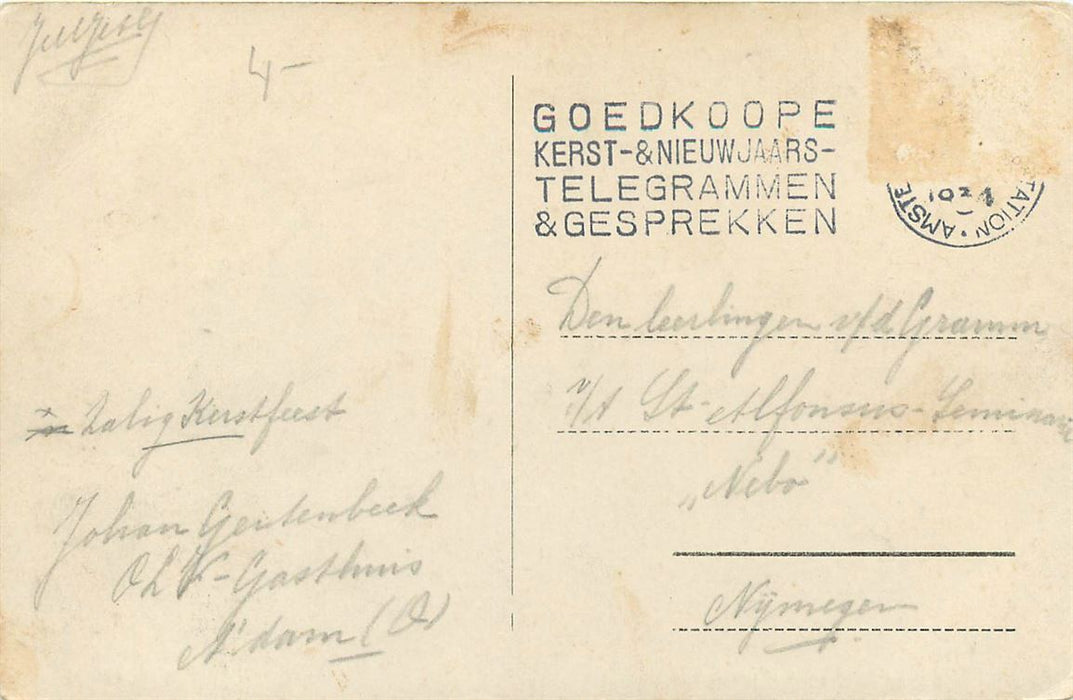 4,-
GOEDKOOPE
KERST-&NIEUWJAARS-
TELEGRAMMEN
&GESPREKKEN
AMSTE
TATION
Den leerlingen v/d Gramm
v/h St-Alfonsus-Seminarie
„Nebo”
Nijmegen
Zalig Kerstfeest
Johan Geutenbeek
OLV-Gasthuis
A'dam (O)